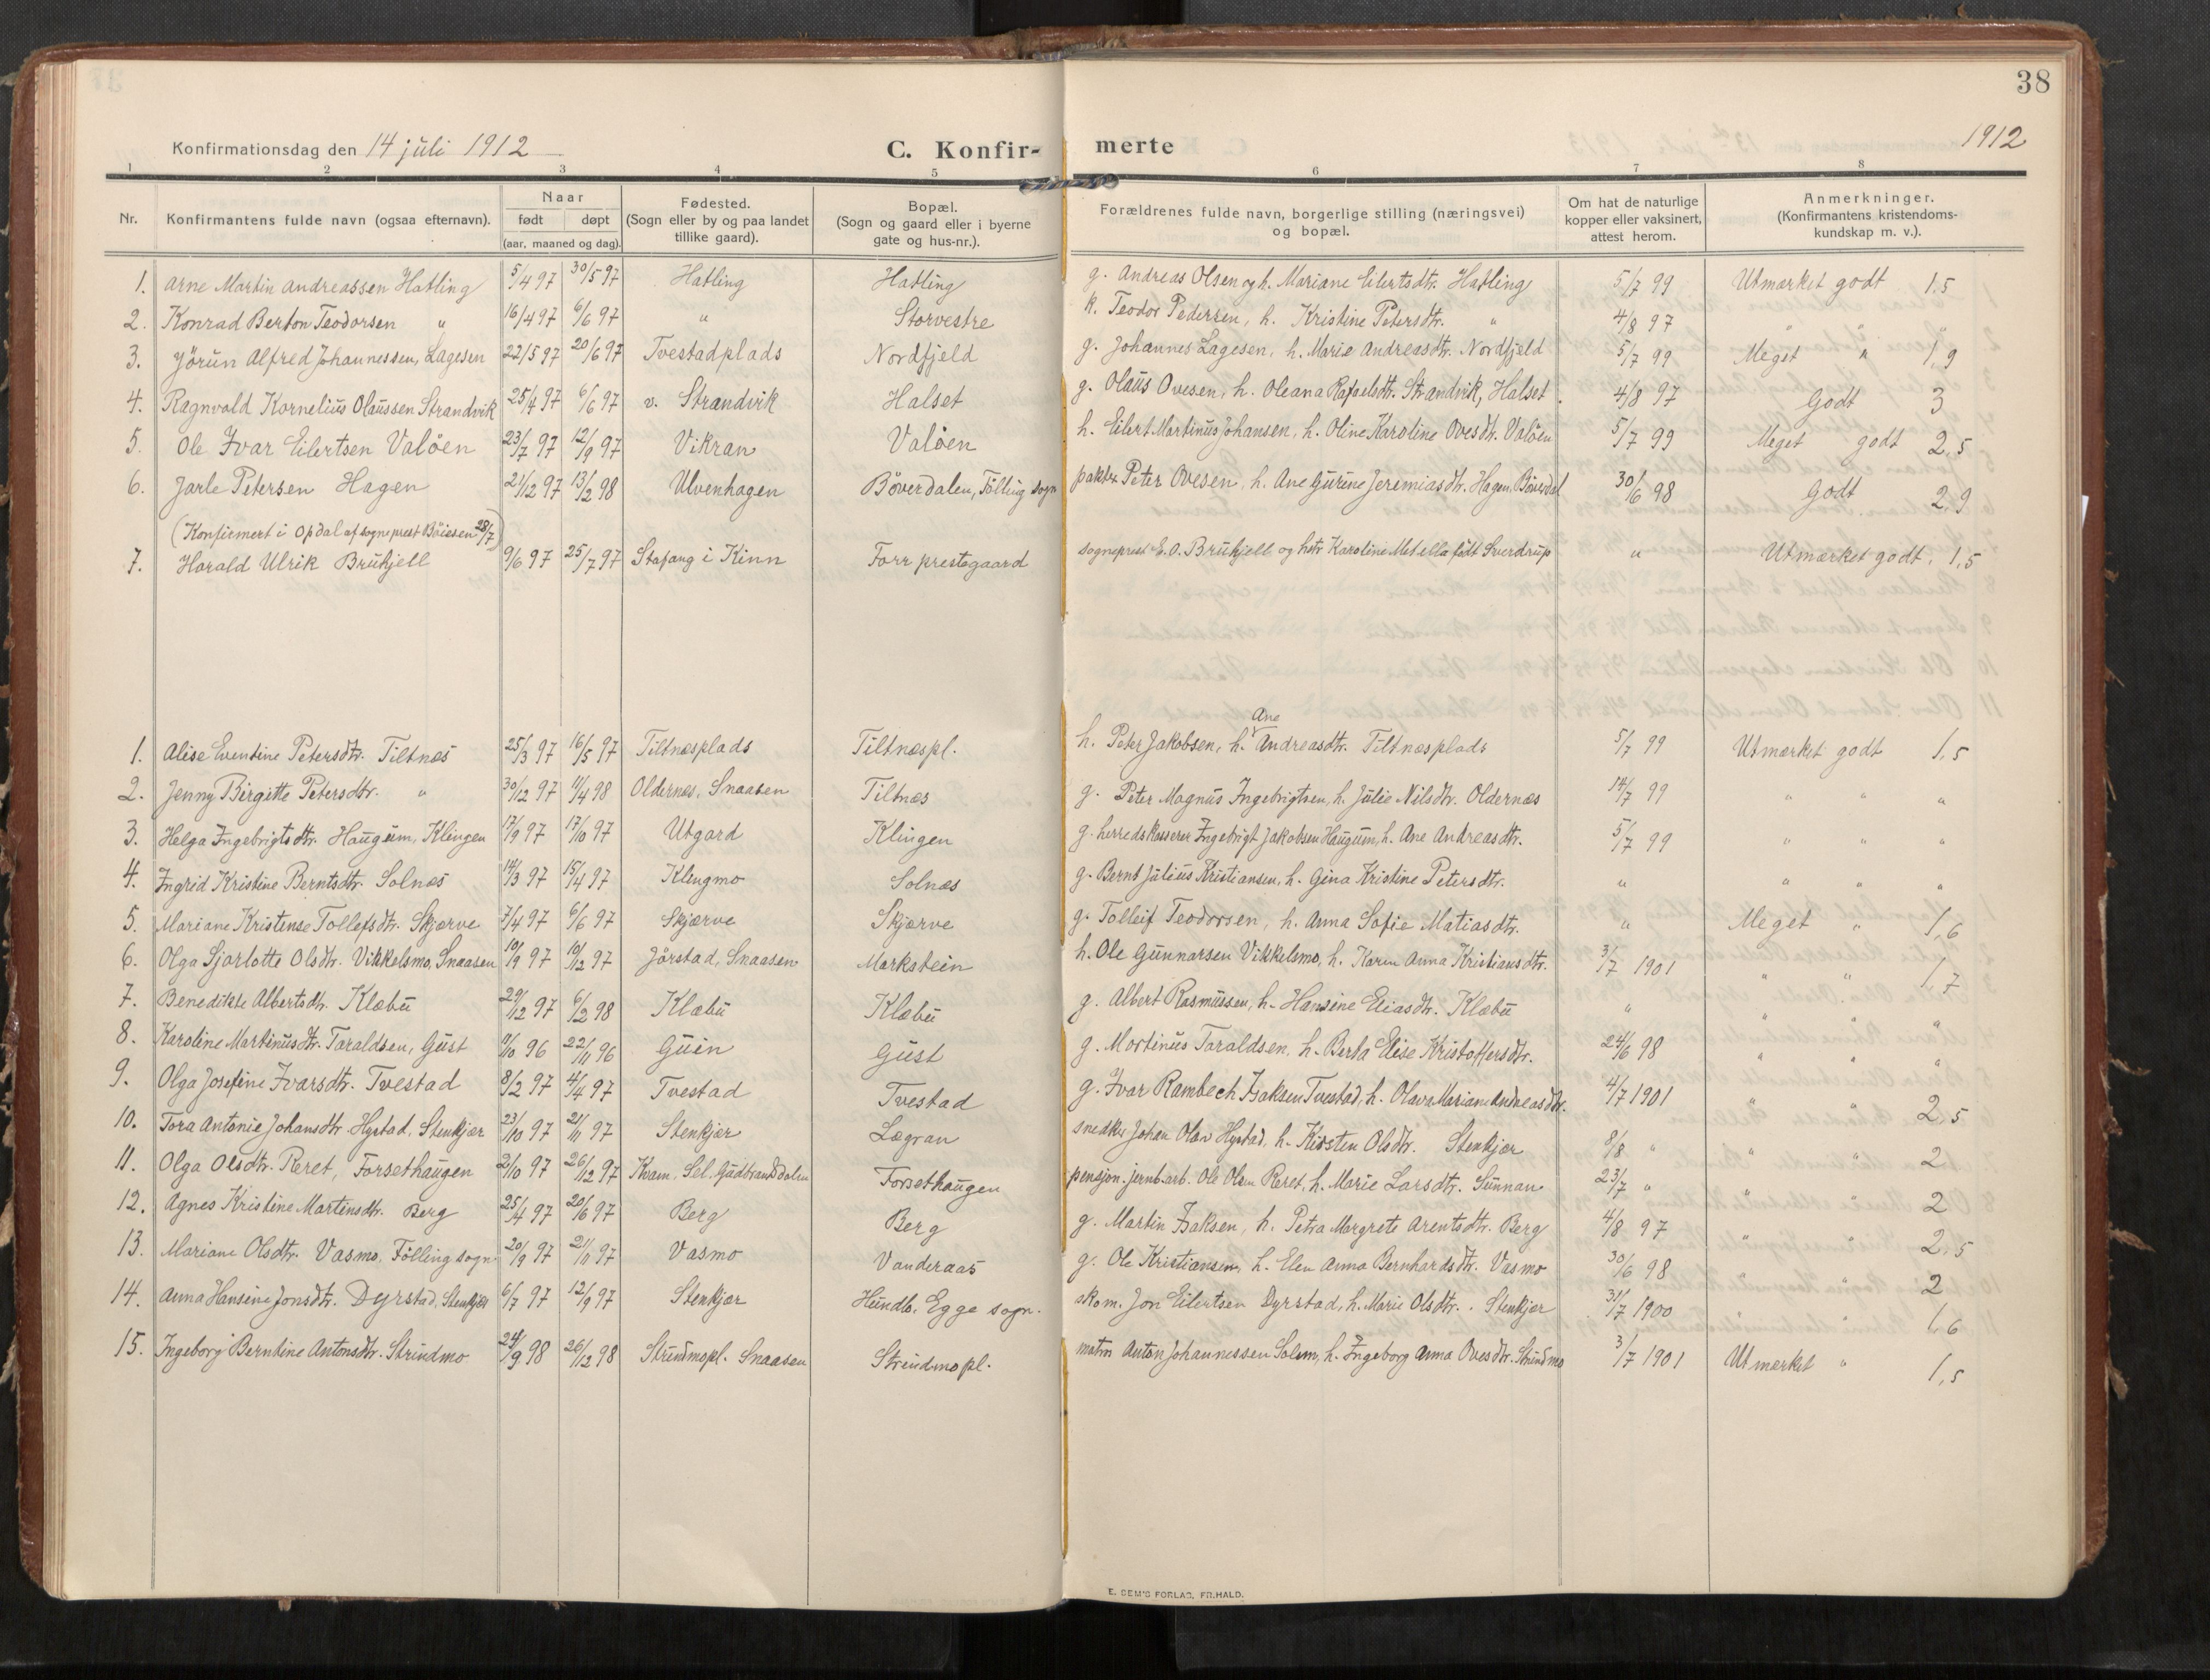 38
Konfirmationsdag den 14 juli 1912
C. Konfir-merte
1912
1 2 3 4 5 6 7 8
Nr. Konfirmantens fulde navn (ogsaa efternavn). Naar født døpt (aar, maaned og dag). Fødested. (Sogn eller by og paa landet tillike gaard). Bopæl. (Sogn og gaard eller i byerne gate og hus-nr.). Forældrenes fulde navn, borgerlige stilling (næringsvei) og bopæl. Om hat de naturlige kopper eller vaksinert, attest herom. Anmerkninger. (Konfirmantens kristendoms-kundskap m. v.).
1. Arne Martin Andreassen Hatling 5/4 97 30/5 97 Hatling Hatling g. Andreas Olsen og h. Mariane Eilertsdtr. Hatling 5/7 99 Utmærket godt 1,5
2. Konrad Berton Teodorsen " 16/4 97 6/6 97 " Storvestre k. Teodor Pedersen, h. Kristine Petersdtr. " 4/8 97 " " "
3. Jörun Alfred Johannessen, Lagesen 22/5 97 20/6 97 Tvestadplads Nordfjeld g. Johannes Lagesen, h. Marie Andreasdtr. Nordfjeld 5/7 99 Meget " 1,9
4. Ragnvald Kornelius Olaussen Strandvik 25/4 97 6/6 97 v. Strandvik Halset g. Olaus Ovesen, h. Oleana Rafaelsdtr. Strandvik, Halset. 4/8 97 Godt 3
5. Ole Ivar Eilertsen Valöen 23/7 97 12/9 97 Vikran Valöen h. Eilert Martinus Johansen, h. Oline Karoline Ovesdtr. Valöen 5/7 99 Meget godt 2,5
6. Jarle Petersen Hagen 21/12 97 13/2 98 Ulvenhagen Böverdalen, Fölling sogn paktr. Peter Ovesen, h. Ane Gurine Jeremiasdtr. Hagen, Böverdal 30/6 98 Godt 2,9
(Konfirmert i Opdal af sogneprest Böiesen 28/7)
7. Harald Ulrik Brukjell 9/6 97 25/7 97 Stafang i Kinn Forr prestegaard sogneprest E. O. Brukjell og hstr Karoline Metella født Sverdrup " Utmærket godt. 1,5
1. Alise Eventine Petersdtr. Tiltnes 25/3 97 16/5 97 Tiltnesplads Tiltnespl. h. Peter Jakobsen, h. Ane Andreasdtr. Tiltnesplads 5/7 99 Utmærket godt 1,5
2. Jenny Birgitte Petersdtr. " 30/12 97 11/4 98 Oldernes, Snaasen Tiltnes g. Peter Magnus Ingebrigtsen, h. Julie Nilsdtr. Oldernes 14/7 99 " " "
3. Helga Ingebrigtsdtr. Haugum, Klingen 17/9 97 17/10 97 Utgard Klingen g. herredskasserer Ingebrigt Jakobsen Haugum, h. Ane Andreasdtr. 5/7 99 " " "
4. Ingrid Kristine Berntsdtr. Solnes 14/3 97 15/4 97 Klingmo Solnes g. Bernt Julius Kristiansen, h. Gina Kristine Petersdtr. " " " "
5. Mariane Kristense Tollefsdtr. Skjærve 7/4 97 6/6 97 Skjærve Skjærve g. Tolleif Teodorsen, h. Anna Sofie Matiasdtr. " Meget " 1,6
6. Olga Sjarlotte Olsdtr. Vikkelsmo, Snaasen 10/9 97 19/12 97 Jörstad, Snaasen Markstein h. Ole Gunnarsen Vikkelsmo, h. Karen Anna Kristiansdtr. 3/7 1901 " " 1,7
7. Benedikte Albertsdtr. Klæbu 29/12 97 6/2 98 Klæbu Klæbu g. Albert Rasmussen, h. Hansine Eliasdtr. Klæbu " " " "
8. Karoline Martinusdtr. Taraldsen, Gust 11/10 96 22/11 96 Guin Gust g. Martinus Taraldsen, h. Berta Elise Kristoffersdtr. 24/6 98 " " "
9. Olga Josefine Ivarsdtr. Tvestad 8/2 97 4/4 97 Tvestad Tvestad g. Ivar Rambech Isaksen Tvestad, h. Olava Mariane Andreasdtr. 4/7 1901 " " 2,5
10. Tora Antonie Johansdtr. Hystad, Stenkjær 23/10 97 21/11 97 Stenkjær Lægran snedker Johan Olav Hystad, h. Kirsten Olsdtr. Stenkjær 8/8 " " " 2
11. Olga Olsdtr. Reret, Forsethaugen 2/10 97 26/12 97 Kvam, Sel. Gudbrandsdalen Forsethaugen pensjon. jernb.arb. Ole Olsen Reret, h. Marie Larsdtr. Sunnan 23/7 " " " 2
12. Agnes Kristine Martinsdtr. Berg 25/4 97 20/6 97 Berg Berg g. Martin Isaksen, h. Petra Margrete Arentsdtr. Berg 4/8 97 " " 2,5
13. Mariane Olsdtr. Vasmo, Fölling sogn 20/9 97 21/11 97 Vasmo Vanderaas g. Ole Kristiansen, h. Elen Anna Bernhardsdtr. Vasmo 30/6 98 " " 2
14. Anna Hansine Jonsdtr. Dyrstad, Stenkjær 6/7 97 12/9 97 Stenkjær Hundb. Egge sogn. skom. Jon Eilertsen Dyrstad, h. Marie Olsdtr. Stenkjær 31/7 1900 " " 1,6
15. Ingeborg Berntine Antonsdtr. Strindmo 24/9 98 26/12 98 Strindmopl. Snaasen Strindmopl. Anton Johannessen Solem, h. Ingeborg Anna Ovesdtr. Strindmo 3/7 1901 Utmærket " 1,5
E. SEM'S FORLAG, FR.HALD.